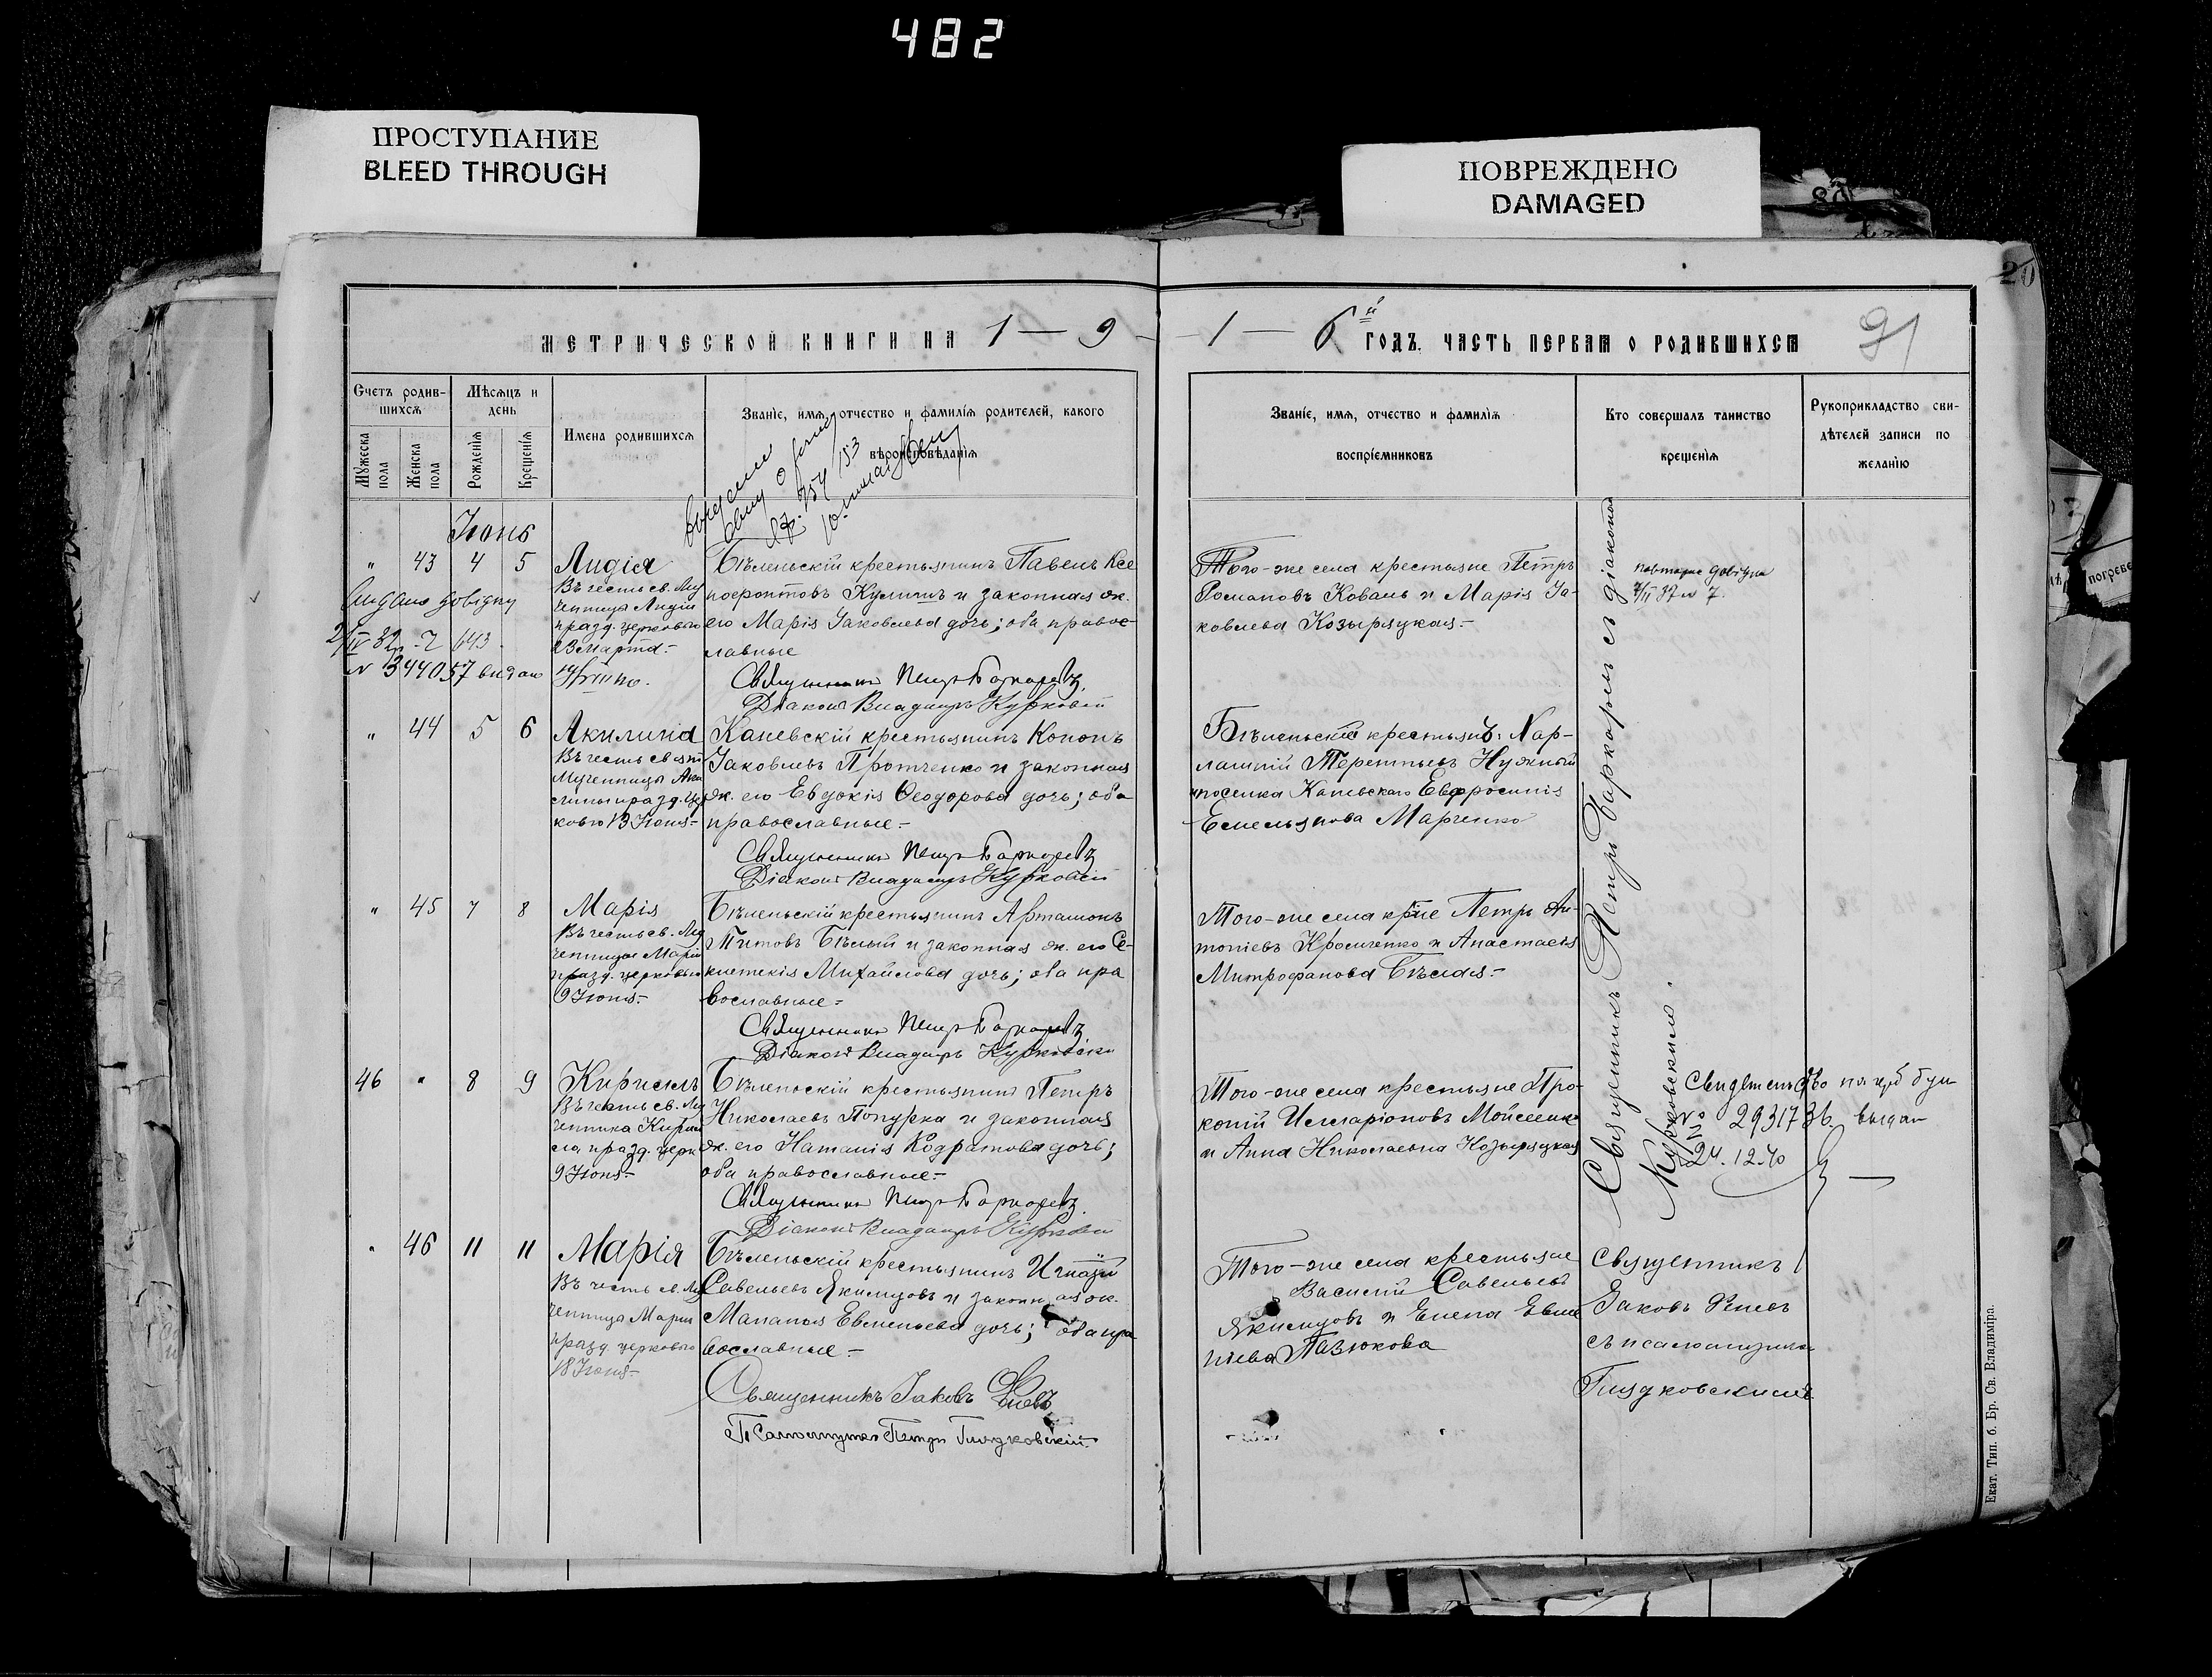 482
ПРОСТУПАНИЕ
BLEED THROUGH
ПОВРЕЖДЕНО
DAMAGED
МЕТРИЧЕСКОЙ КНИГИ НА 1 — 9 —
— 1 — 6й ГОДЪ. ЧАСТЬ ПЕРВАЯ О РОДИВШИХСЯ
91
Счетъ родив-
шихся
Мѣсяцъ и
день
Мужеска пола
Женска пола
Рожденія
Крещенія
Имена родившихся
Званіе, имя, отчество и фамилія родителей, какого
вѣроисповѣданія
Званіе, имя, отчество и фамилія
воспріемниковъ
Кто совершалъ таинство
крещенія
Рукоприкладство сви-
дѣтелей записи по
желанію
Іюнь
" 43 4 5 Лидія
Въ честь св. Му
ченицы Лидіи
празд. церковью
23 Марта.-
Бѣленьскій крестьянинъ Павелъ Ксе
нофонтовъ Кулишъ и законная ж.
его Марія Іаковлева дочь; оба правос-
лавные
Священникъ Петръ Баркаревъ
Діаконъ Владиміръ Курковскій
Того-же села крестьяне Петръ
Романовъ Коваль и Марія Іа-
ковлева Козыряцкая.-
видано довідку
№ 344057 видано
повторно довідку
7/II 37 № 7.
" 44 5 6 Акилина
Въ честь святой
Мученицы Аки
лины празд. цер
ковью 13 Іюня-
Каневскій крестьянинъ Кононъ
Іаковлевъ Протченко и законная
ж. его Евдокія Ѳеодорова дочь; оба
православные.-
Священникъ Петръ Баркаревъ
Діаконъ Владиміръ Курковскій
Бѣленьскій крестьянинъ Хар-
лампій Терентьевъ Нужный
и поселка Каневскаго Евфросинія
Емельянова Марченко
" 45 7 8 Марія
Въ честь св. Му
ченицы Маріи
празд. церковью
9 Іюня.-
Бѣленьскій крестьянинъ Артамонъ
Титовъ Бѣлый и законная ж. его Се-
клетекія Михайлова дочь; оба пра
вославные-
Священникъ Петръ Баркаревъ
Діаконъ Владиміръ Курковскій
Того-же села кр-не Петръ Ан-
тоніевъ Кромченко и Анастасія
Митрофанова Бѣлая.-
46 " 8 9 Кириллъ
Въ честь св. Му
ченика Кирил
ла, празд. церк
9 Іюня-
Бѣленьскій крестьянинъ Петръ
Николаевъ Попурка и законная
ж. его Наталія Кодратова дочь;
оба православные-
Священникъ Петръ Баркаревъ
Діаконъ Владиміръ Курковскій
Того-же села крестьяне Про-
копій Илларіоновъ Мойсеенко
и Анна Николаевна Козыряцкая
Священникъ Петръ Баркаревъ съ діакономъ
Курковскимъ.
№ 293173
24.12.40
" 46 11 11 Марія
Въ честь св. Му
ченицы Маріи
празд. церковью
18 Іюня-
Бѣленьскій крестьянинъ Игнатій
Савельевъ Якимцовъ и законная ж.
Маланья Евменьева дочь; оба пра
вославные.-
Священникъ Іаковъ
Псаломщикъ Петръ Гнядковскій.
Того-же села крестьяне
Василій Савельевъ
Якимцовъ и Елена Евме
ніева Пазюкова
Священникъ
Іаковъ
съ псаломщикомъ
Гнядковскимъ
Екат. Тип. б. Бр. Св. Владиміра.
погребе